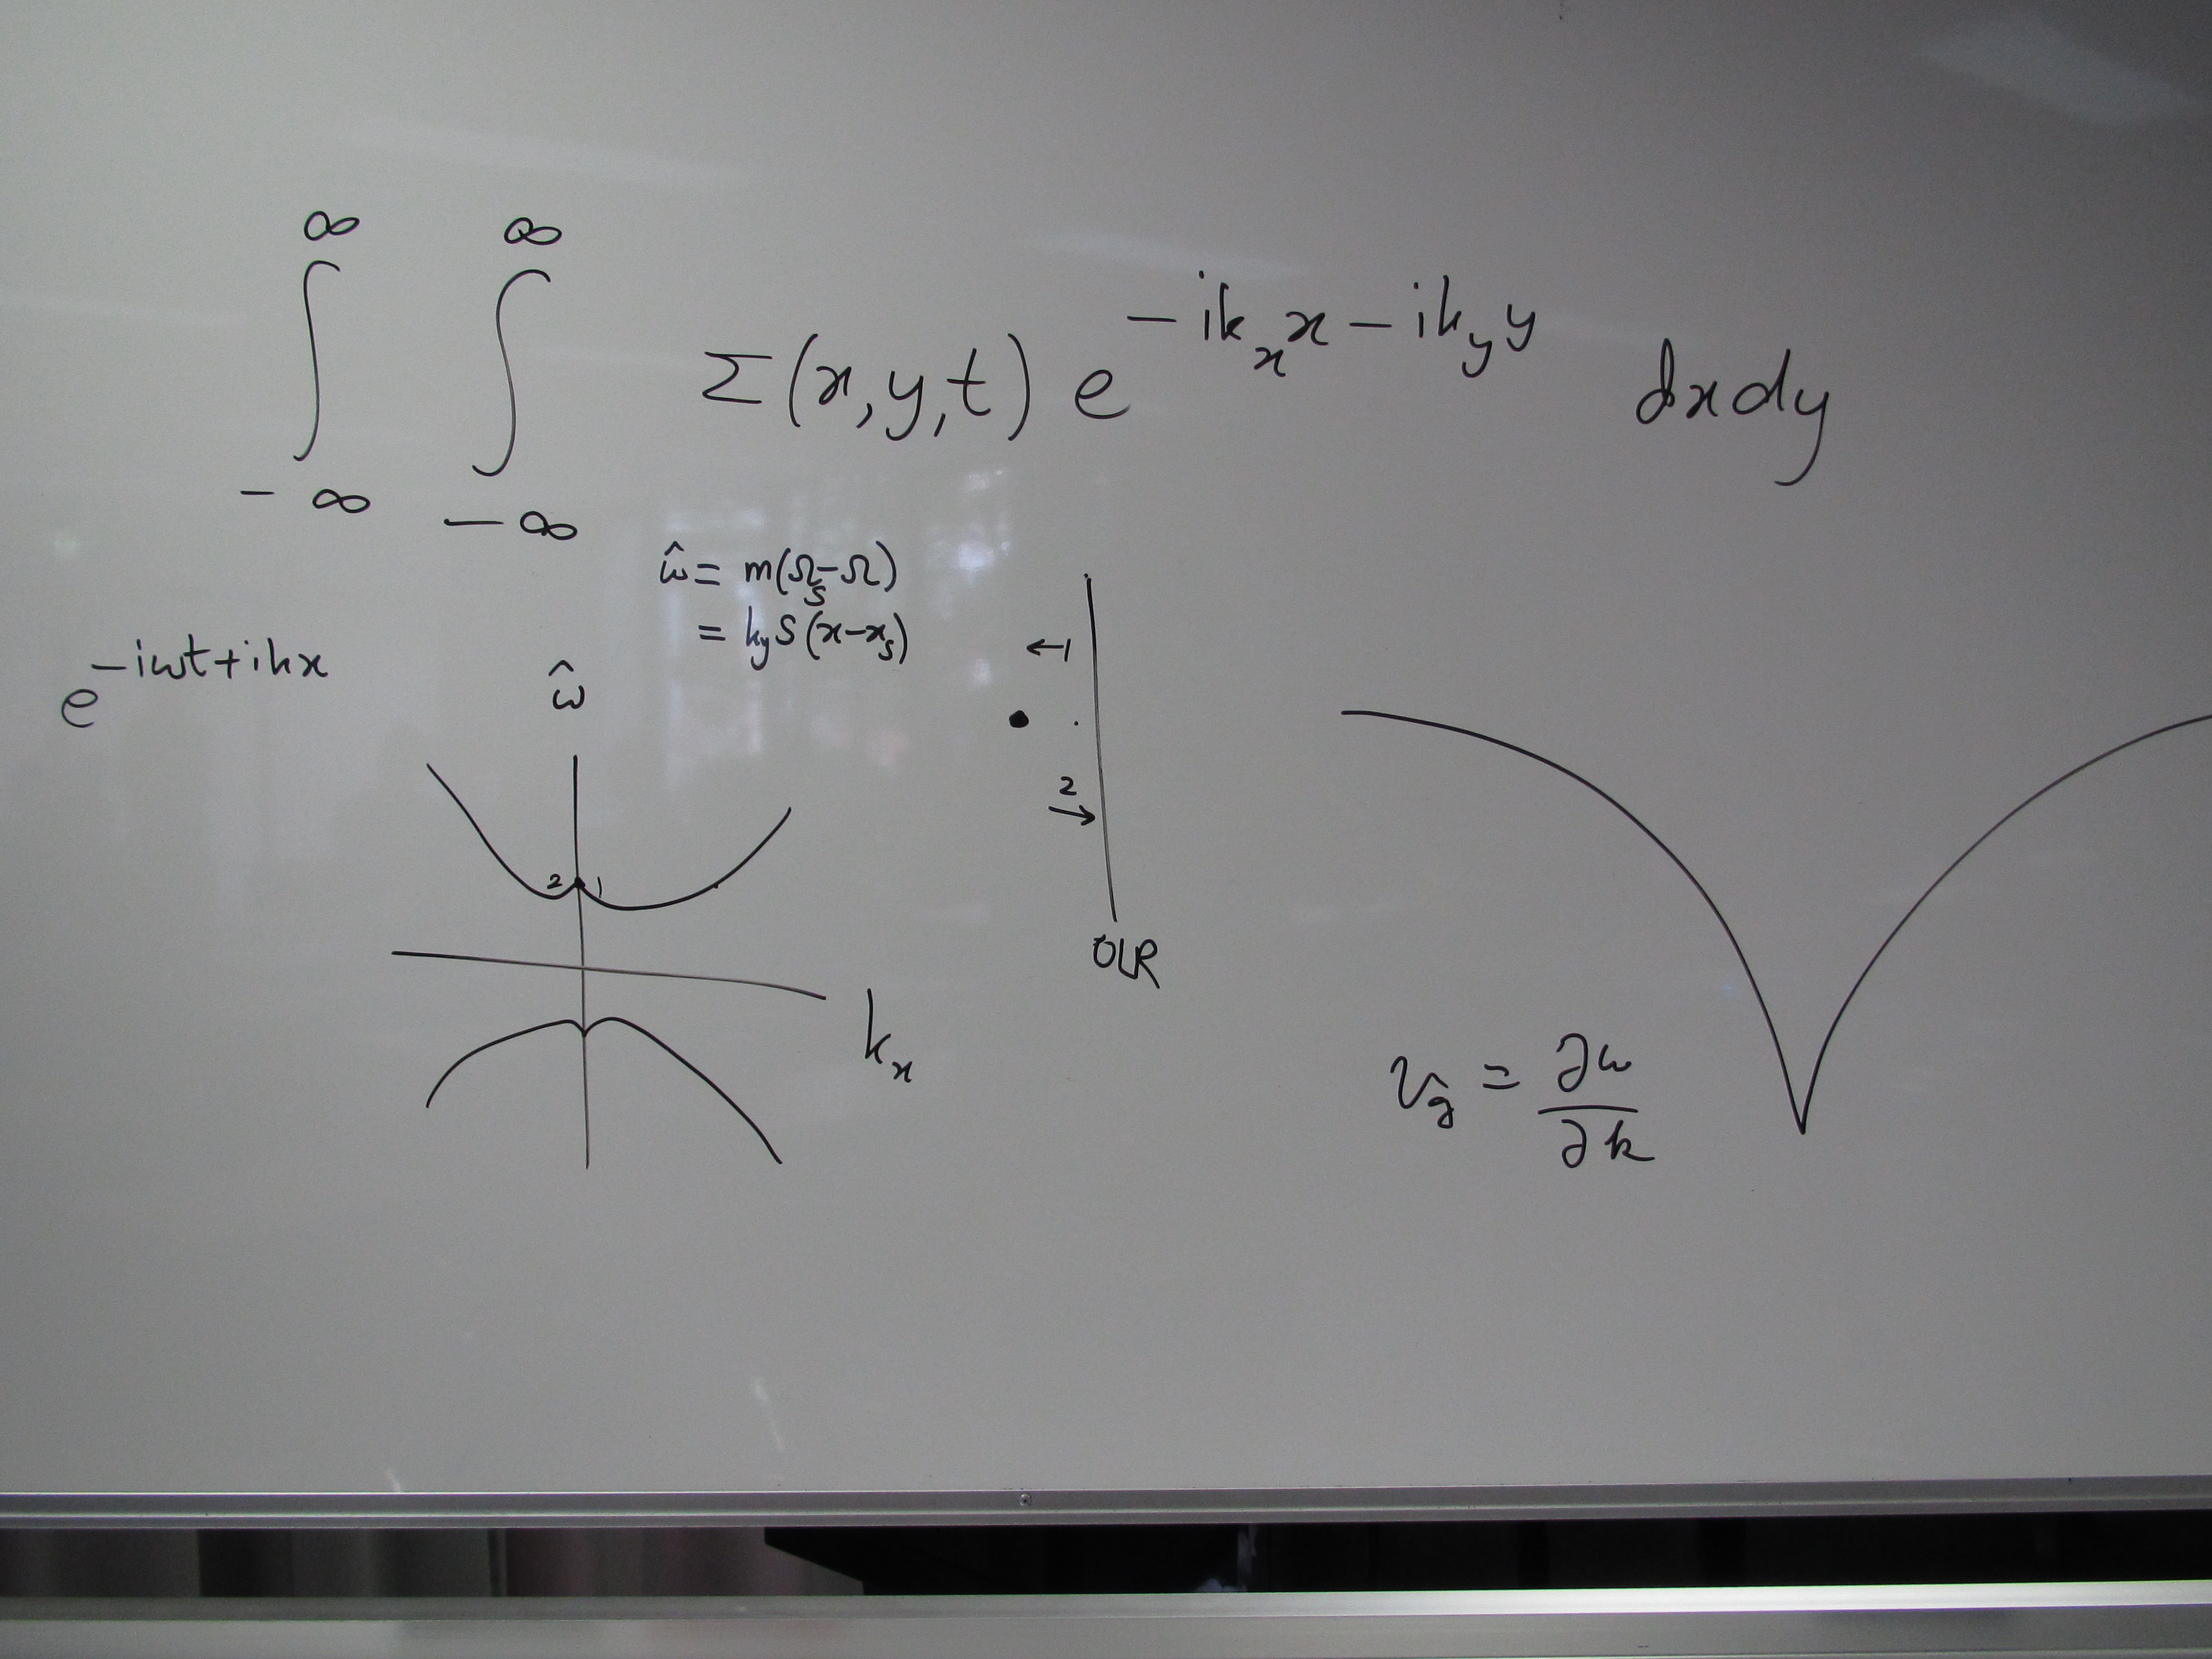 ∞ ∞
∫ ∫ Σ(x,y,t) e^{-ik_x x - ik_y y} dxdy
-∞ -∞
ω̂ = m(Ω_s-Ω)
= k_y S(x-x_s)
e^{-iωt+ikx}
ω̂
←1
2
→
2 1
OLR
k_x
v_g = ∂ω/∂k